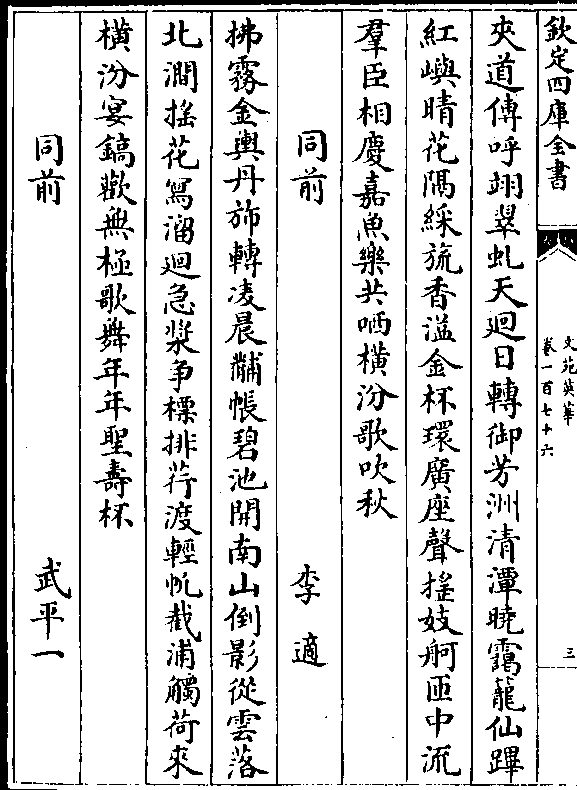 欽定四庫全書
文苑英華
卷一百七十六
三
夾道傳呼翊翠虬天廻日轉御芳洲清潭曉靄籠仙蹕
紅嶼晴花隔綵旒香溢金杯環廣座聲搖妓舸匝中流
羣臣相慶嘉魚樂共哂橫汾歌吹秋
同前 李適
拂霧金輿丹旆轉凌晨黼帳碧池開南山倒影從雲落
北澗搖花寫溜廻急槳爭標排荇渡輕帆截浦觸荷來
橫汾宴鎬歡無極歌舞年年聖壽杯
同前 武平一